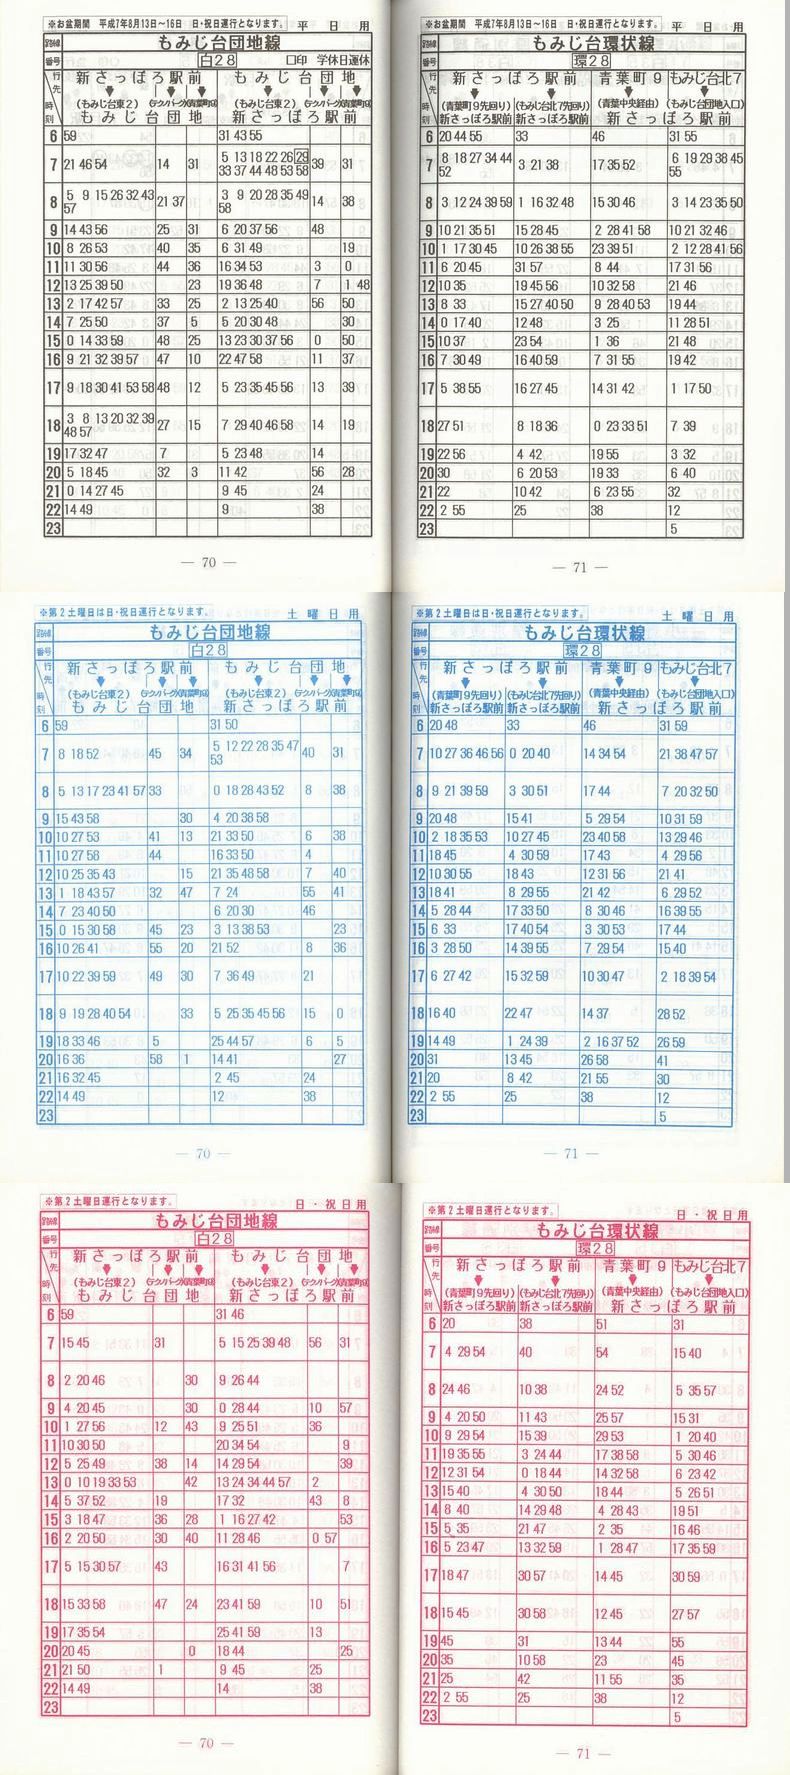 ※お盆期間　平成7年8月13日～16日　日・祝日運行となります。　平　日　用
もみじ台団地線
番号　白28　□印　学休日運休
行先　新さっぽろ駅前　もみじ台団地
(もみじ台東2)　(テクノパーク)　(青葉町9)　(もみじ台東2)　(テクノパーク)　(青葉町9)
時刻　もみじ台団地　新さっぽろ駅前
6　59　31 43 55
7　21 46 54　14　31　5 13 18 22 26 29 33 37 44 48 53 58　39　31
8　5 9 15 26 32 43 57　21 37　3 9 20 28 35 49 58　14　38
9　14 43 56　25　31　6 20 37 56　48
10　8 26 53　40　35　6 31 49　19
11　11 30 56　44　36　16 34 53　3　0
12　13 25 39 50　23　19 36 48　7　1 48
13　2 17 42 57　33　25　2 13 25 40　56　50
14　7 25 50　37　5　5 20 30 48　30
15　0 14 33 59　48　25　13 23 30 37 56　0　50
16　9 21 32 39 57　47　10　22 47 58　11　37
17　9 18 30 41 53 58　48　12　5 23 35 45 56　13　39
18　3 8 13 20 32 39 48 57　27　15　7 29 40 46 58　14　19
19　17 32 47　7　5 23 48　14
20　5 18 45　32　3　11 42　56　28
21　0 14 27 45　9 45　24
22　14 49　9　38
23
— 70 —
※お盆期間　平成7年8月13日～16日　日・祝日運行となります。　平　日　用
もみじ台環状線
番号　環28
行先　新さっぽろ駅前　青葉町9　もみじ台北7
(青葉町9先回り)　(もみじ台北7先回り)　(青葉中央経由)　(もみじ台団地入口)
時刻　新さっぽろ駅前　新さっぽろ駅前　新さっぽろ駅前
6　20 44 55　33　46　31 55
7　8 18 27 34 44 52　3 21 38　17 35 52　6 19 29 38 45 55
8　3 12 24 39 59　1 16 32 48　15 30 46　3 14 23 35 50
9　10 21 35 51　15 28 45　2 28 41 58　10 21 32 46
10　1 17 30 45　10 26 38 55　23 39 51　2 12 28 41 56
11　6 20 45　31 57　8 44　17 31 56
12　10 35　19 45 56　10 32 58　21 46
13　8 33　15 27 40 50　9 28 40 53　19 44
14　0 17 40　12 48　3 25　11 28 51
15　10 37　23 54　1 36　21 48
16　7 30 49　16 40 59　7 31 55　19 42
17　5 38 55　16 27 45　14 31 42　1 17 50
18　27 51　8 18 36　0 23 33 51　7 39
19　22 56　4 42　19 55　3 32
20　30　6 20 53　19 33　6 40
21　22　10 42　6 23 55　32
22　2 55　25　38　12
23　5
— 71 —
※第2土曜日は日・祝日運行となります。　土　曜　日　用
もみじ台団地線
番号　白28
行先　新さっぽろ駅前　もみじ台団地
(もみじ台東2)　(テクノパーク)　(青葉町9)　(もみじ台東2)　(テクノパーク)　(青葉町9)
時刻　もみじ台団地　新さっぽろ駅前
6　59　31 50
7　8 18 52　45　34　5 12 22 28 35 47 53　40　31
8　5 13 17 23 41 57　33　0 18 28 43 52　8　38
9　15 43 58　30　4 20 38 58
10　10 27 53　41　13　21 33 50　6　38
11　10 27 58　44　16 33 50　4
12　10 25 35 43　15　21 35 48 58　7　40
13　1 18 43 57　32　47　7 24　55　41
14　7 23 40 50　6 20 30　46
15　0 15 30 58　45　23　3 13 38 53　23
16　10 26 41　55　20　21 52　8　36
17　10 22 39 59　49　30　7 36 49　21
18　9 19 28 40 54　33　5 25 35 45 56　15　0
19　18 33 46　5　25 44 57　6　5
20　16 36　58　1　14 41　27
21　16 32 45　2 45　24
22　14 49　12　38
23
— 70 —
※第2土曜日は日・祝日運行となります。　土　曜　日　用
もみじ台環状線
番号　環28
行先　新さっぽろ駅前　青葉町9　もみじ台北7
(青葉町9先回り)　(もみじ台北7先回り)　(青葉中央経由)　(もみじ台団地入口)
時刻　新さっぽろ駅前　新さっぽろ駅前　新さっぽろ駅前
6　20 48　33　46　31 59
7　10 27 36 46 56　0 20 40　14 34 54　21 38 47 57
8　9 21 39 59　3 30 51　17 44　7 20 32 50
9　20 48　15 41　5 29 54　10 31 59
10　2 18 35 53　10 27 45　23 40 58　13 29 46
11　18 45　4 30 59　17 43　4 29 56
12　10 30 55　18 43　12 31 56　21 41
13　18 41　8 29 55　21 42　6 29 52
14　5 28 44　17 33 50　8 30 46　16 39 55
15　6 33　17 40 54　3 30 53　17 44
16　3 28 50　14 39 55　7 29 54　15 40
17　6 27 42　15 32 59　10 30 47　2 18 39 54
18　16 40　22 47　14 37　28 52
19　14 49　1 24 39　2 16 37 52　26 59
20　31　13 45　26 58　41
21　20　8 42　21 55　30
22　2 55　25　38　12
23　5
— 71 —
※第2土曜日運行となります。　日・祝日用
もみじ台団地線
番号　白28
行先　新さっぽろ駅前　もみじ台団地
(もみじ台東2)　(テクノパーク)　(青葉町9)　(もみじ台東2)　(テクノパーク)　(青葉町9)
時刻　もみじ台団地　新さっぽろ駅前
6　59　31 46
7　15 45　31　5 15 25 39 48　56　31
8　2 20 46　30　9 26 44
9　4 20 45　30　0 28 44　10　57
10　1 27 56　12　43　9 25 51　36
11　10 30 50　20 34 54　9
12　5 25 49　38　14　14 29 54　39
13　0 10 19 33 53　42　13 24 34 44 57　2
14　5 37 52　19　17 32　43　8
15　3 18 47　36　28　1 16 27 42　53
16　2 20 50　30　40　11 28 46　0 57
17　5 15 30 57　43　16 31 41 56　7
18　15 33 58　47　24　23 41 59　10　51
19　17 35 54　25 41 59　13
20　20 45　0　18 44　25
21　21 50　1　9 45　25
22　14 49　14　38
23
— 70 —
※第2土曜日運行となります。　日・祝日用
もみじ台環状線
番号　環28
行先　新さっぽろ駅前　青葉町9　もみじ台北7
(青葉町9先回り)　(もみじ台北7先回り)　(青葉中央経由)　(もみじ台団地入口)
時刻　新さっぽろ駅前　新さっぽろ駅前　新さっぽろ駅前
6　20　38　51　31
7　4 29 54　40　54　15 40
8　24 46　10 38　24 52　5 35 57
9　4 20 50　11 43　25 57　15 31
10　9 29 54　15 39　29 53　1 20 40
11　19 35 55　3 24 44　17 38 58　5 30 46
12　12 31 54　0 18 44　14 32 58　6 23 42
13　15 40　4 30 50　18 44　5 26 51
14　8 40　14 29 48　4 28 43　19 51
15　5 35　21 47　2 35　16 46
16　5 23 47　13 32 59　1 28 47　17 35 59
17　18 47　30 57　14 45　30 59
18　15 45　30 58　12 45　27 57
19　45　31　13 44　55
20　35　10 58　23　45
21　25　42　11 55　35
22　2 55　25　38　12
23　5
— 71 —